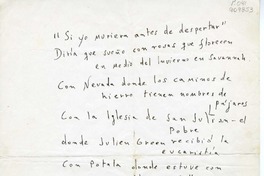 "Si yo muriera antes de despertar"
Diría que sueño con rosas que florecen
en medio del invierno en Savannah
Con Nevada donde los caminos de
hierro tienen nombres de
pájaros
Con la Iglesia de San Julián-el
Pobre
donde Julien Green recibió la
eucaristía
Con Potala donde estuve con